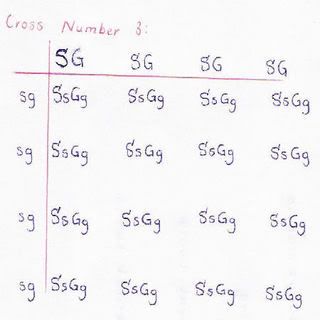 Cross Number 3:
SG SG SG SG
sg SsGg SsGg SsGg SsGg
sg SsGg SsGg SsGg SsGg
sg SsGg SsGg SsGg SsGg
sg SsGg SsGg SsGg SsGg